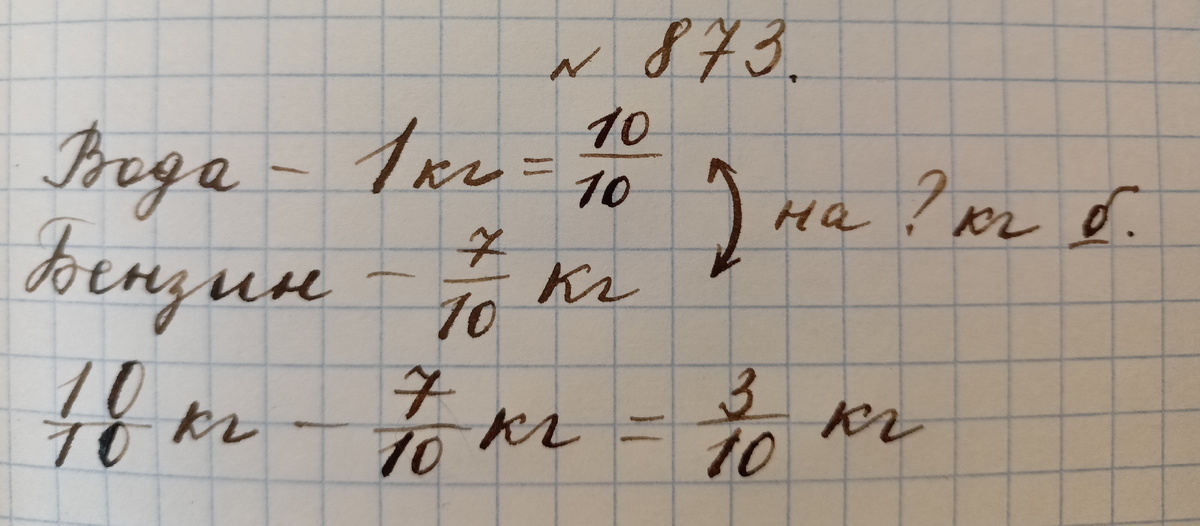 № 873.
Вода – 1 кг = 10/10
на ? кг б.
Бензин – 7/10 кг
10/10 кг – 7/10 кг = 3/10 кг